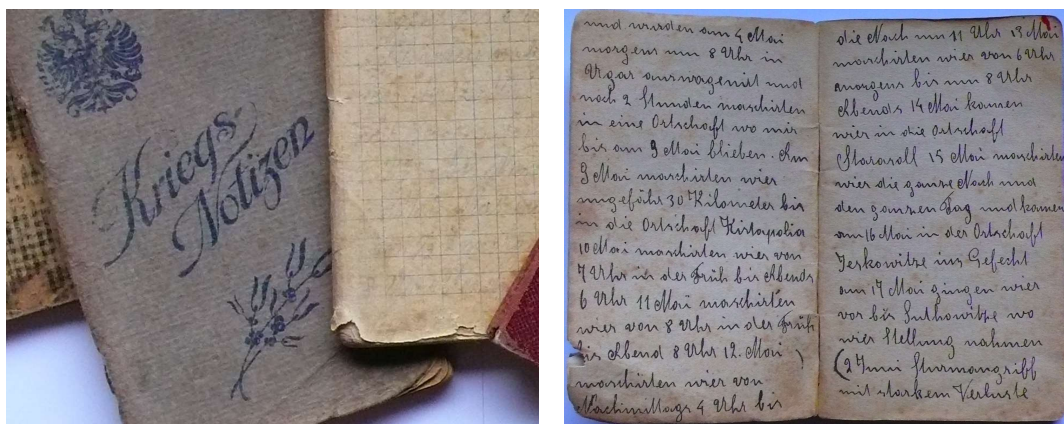 Kriegs
Notizen
und wurden am 4 Mai
morgens um 8 Uhr in
Ugar auswagenirt und
nach 2 Stunden maschirten
in eine Ortschaft wo mir
bis am 9 Mai blieben. Am
9 Mai maschirten wier
ungefähr 30 Kilometer bis
in die Ortschaft Kistapolia
10 Mai maschirten wier von
7 Uhr in der Früh bis Abends
6 Uhr 11 Mai maschirten
wier von 8 Uhr in der Früh
bis Abend 8 Uhr 12. Mai
maschirten wier von
Nachmittags 4 Uhr bis
die Nach um 11 Uhr 13 Mai
maschirten wier von 6 Uhr
morgens bis um 8 Uhr
Abends 14 Mai kamen
wier in die Ortschaft
Starasoll 15 Mai maschirten
wier die ganze Nach und
den ganzen Tag und kamen
am 16 Mai in der Ortschaft
Jeskowitze ins Gefecht
am 17 Mai gingen wier
vor bis Huthowitze wo
wier Stellung nahmen
(2 Juni Sturmangribb
mit starkem Verluste